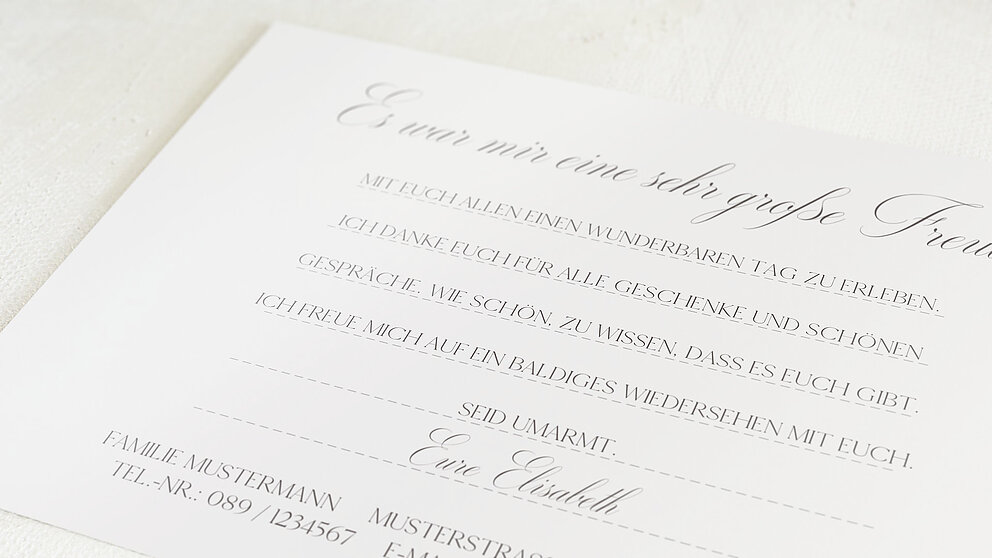 Es war mir eine sehr große
MIT EUCH ALLEN EINEN WUNDERBAREN TAG ZU ERLEBEN.
ICH DANKE EUCH FÜR ALLE GESCHENKE UND SCHÖNEN
GESPRÄCHE. WIE SCHÖN, ZU WISSEN, DASS ES EUCH GIBT.
ICH FREUE MICH AUF EIN BALDIGES WIEDERSEHEN MIT EUCH.
SEID UMARMT.
Eure Elisabeth
FAMILIE MUSTERMANN
TEL.-NR.: 089 / 1234567